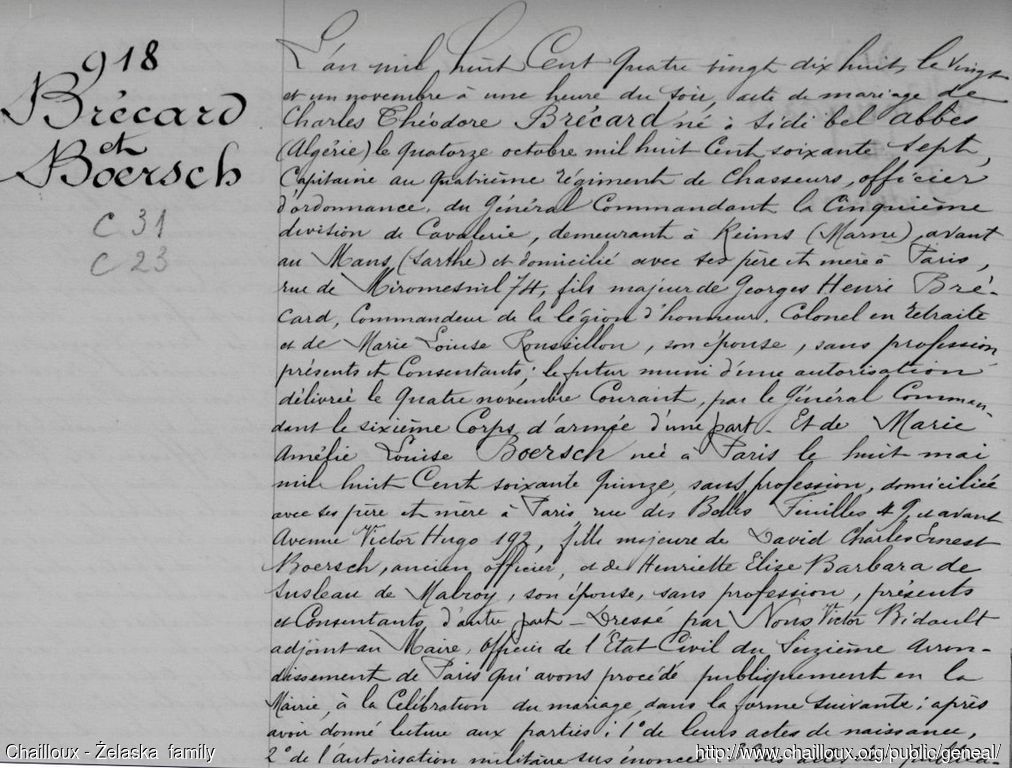 918
Brécard
et
Boersch
C 31
C 23
L'an mil huit Cent quatre vingt dix huit, le vingt
et un novembre à une heure du soir, acte de mariage de
Charles Théodore Brécard né à Sidi bel abbès
(Algérie) le quatorze octobre mil huit Cent soixante sept,
Capitaine au quatrième régiment de Chasseurs, officier
d'ordonnance du Général Commandant la Cinquième
division de Cavalerie, demeurant à Reims (Marne) avant
au Mans, (Sarthe) et domicilié avec ses père et mère à Paris,
rue de Miromesnil 74, fils majeur de Georges Henri Bré-
card, Commandeur de la légion d'honneur, Colonel en retraite
et de Marie Louise Roussillon, son épouse, sans profession
présents et Consentants; le futur muni d'une autorisation
délivrée le quatre novembre Courant, par le Général Comman-
dant le sixième Corps d'armée d'une part - Et de Marie
Amélie Louise Boersch née à Paris le huit mai
mil huit Cent soixante quinze, sans profession, domiciliée
avec ses père et mère à Paris rue des Belles Feuilles 49 et avant
Avenue Victor Hugo 192, fille majeure de David Charles Ernest
Boersch, ancien officier, et de Henriette Elise Barbara de
Susleau de Malroy, son épouse, sans profession, présents
et Consentants, d'autre part - Dressé par Nous Victor Bidault
adjoint au Maire, officier de l'Etat Civil du Seizième arron-
dissement de Paris qui avons procédé publiquement en la
Mairie, à la Célébration du mariage dans la forme suivante: après
avoir donné lecture aux parties: 1° de leurs actes de naissance,
2° de l'autorisation militaire sus énoncée
Chailloux - Želaska family
http://www.chailloux.org/public/geneal/